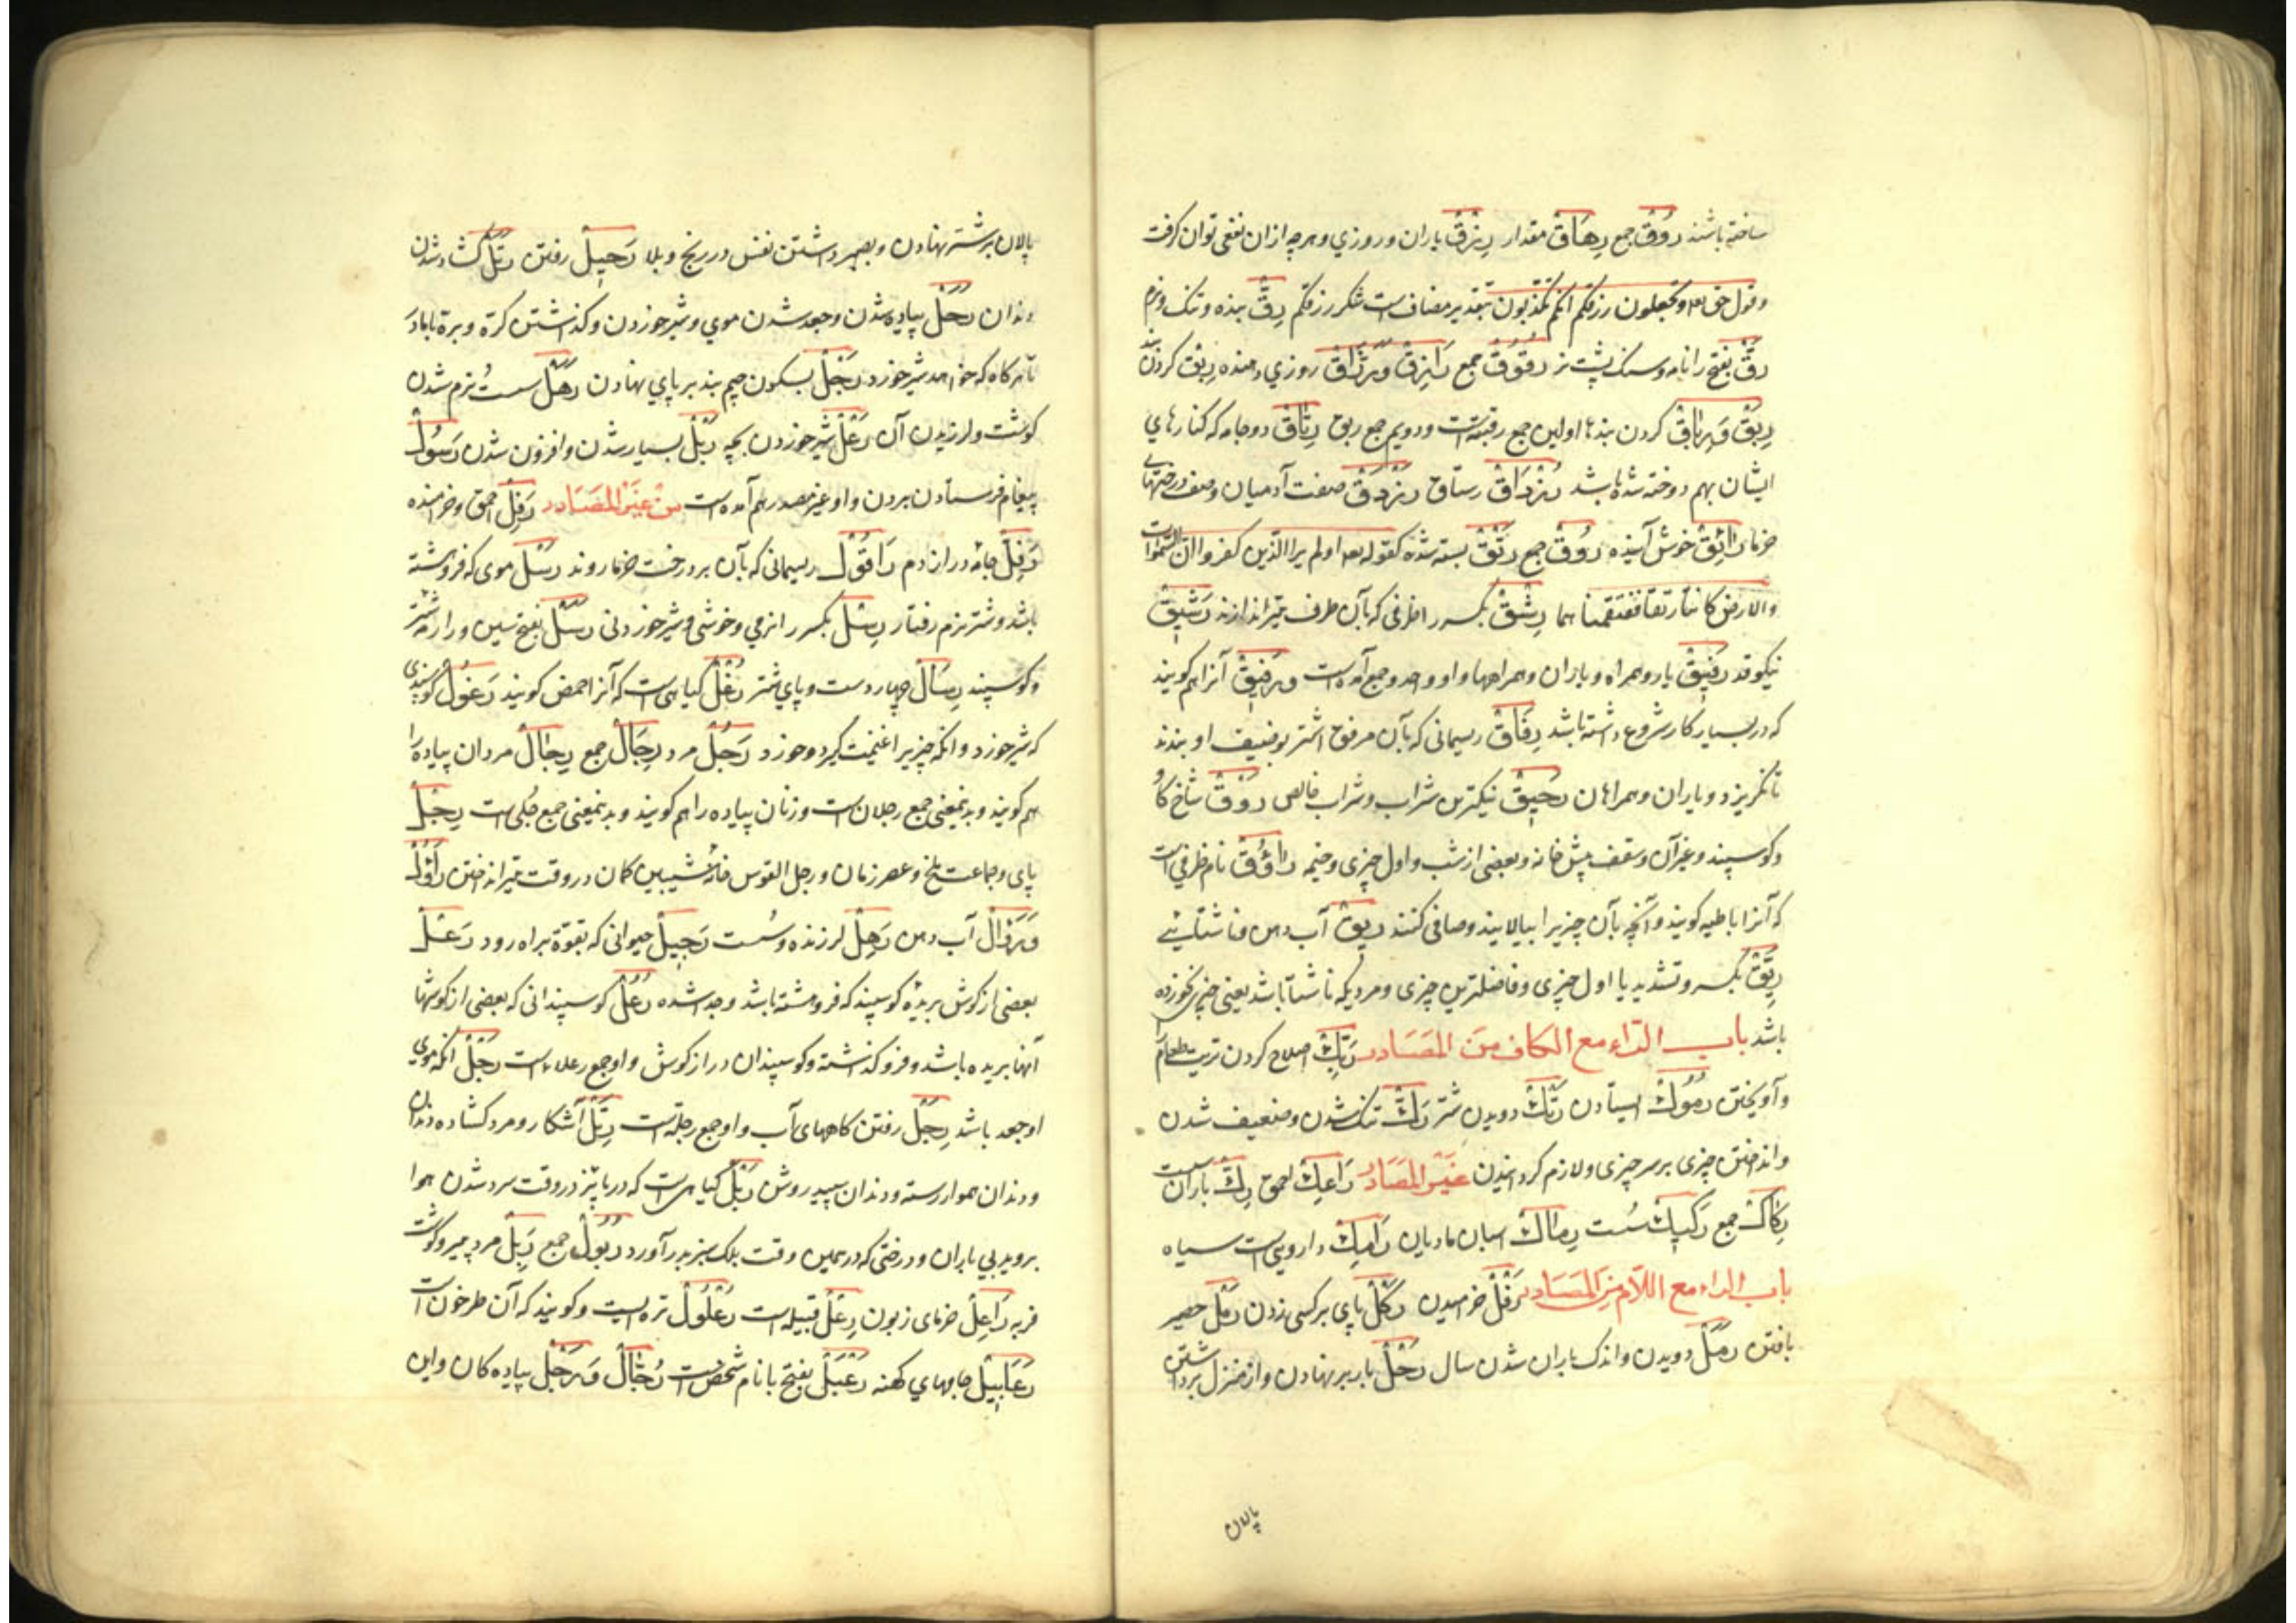 ساخته باشند رُوُقْ جمع رِهَاقْ مقدار رِزْقْ باران و روزي و هرچه ازان نفعى توان كرفت
و قول حق تعا و تجعلون رزقكم انكم تكذبون بتقدير مضاف است شكر رزقكم رِقّْ بنده و تنك و نرم
رَقّْ بفتح را نامه و سنك پشت نر رُقُوُقْ جمع رَازِقْ وَرَزَّاقْ روزي دهنده رِبْقْ كردن بند
رِبَقْ وَرِبَاقْ كردن بندها اولين جمع ربقه است و دويم جمع ربق رِتَاقْ دو جامه كه كنارهاي
ايشان بهم دوخته شده باشد رُزْدَاقْ رستاق رَزْدَقْ صف آدميان و صف درختهاي
خرما رَائِقْ خوش آينده رُوُقْ جمع رَتْقْ بسته شده كقوله تعا اولم ير الذين كفروا ان السموات
والارض كانتا رتقا ففتقناهما رِشْقْ بكسر را طرفى كه بآن طرف تير اندازند رَشِيقْ
نيكو قد رَفِيقْ يار و همراه و ياران و همراهها و او واحد و جمع آمده است وَرَفِيقْ آنرا هم كويند
كه در بسيار كار شروع داشته باشد رِفَاقْ ريسمانى كه بآن مرفق اشتر بوضيف او بندند
تا نكريزد و ياران و همراهان رَحِيقْ نيكترين شراب و شراب خالص رَوْقْ شاخ كاو
و كوسپند و غير آن و سقف پيش خانه و بعضى از شب و اول چيزى و خيمه رَاوُوقْ نام ظرفي است
كه آنرا باطيه كويند و آنچه بآن چيزيرا بپالايند و صافى كنند رِيقْ آب دهن و ناشتائى
رِيّقْ بكسر و تشديد يا اول چيزى و فاضلترين چيزى و مرديكه ناشتا باشد يعنى چيزى نخورده
باشد باب الراء مع الكاف من المَصَادر رَبْكْ اصلاح كردن تريت طعام را
و آويختن رُمُوكْ ايستادن رَتْكْ دويدن شتر رَكّْ تنك شدن و ضعيف شدن
و انداختن چيزى بر سر چيزى و لازم كردانيدن غَيْر المَصَادر رَاعِكْ احمق رِكّْ باران سست
رِكَاكْ جمع رَكِيكْ سُست رِمَاكْ اسبان ماديان رَامِكْ داروئى است سياه
باب الراء مع اللام من المَصَادر رَفْلْ خراميدن رَكْلْ پاي بر كسى زدن رَمْلْ حصير
بافتن رَمَلْ دويدن و اندك باران شدن سال رَحْلْ بار بر نهادن و از منزل برداشتن
پالان
پالان بر شتر نهادن و بصبر داشتن نفس در رنج و بلا رَحِيلْ رفتن رَتَلْ كشاده شدن
دندان رَجَلْ پياده شدن و جعد شدن موي و شير خوردن و كذاشتن كره و بره با مادر
تا هركاه كه خواهد شير خورد رَجْلْ بسكون جيم بند بر پاي نهادن رَهَلْ سست و نرم شدن
كوشت و لرزيدن آن رَغْلْ شير خوردن بچه رَبْلْ بسيار شدن و افزون شدن رَسُولْ
پيغام فرستادن بردن و او غير مصدر هم آمده است من غَيْر المصَادر رَفِلْ احمق و خرامنده
رَفِلّْ جامه دراز دم رَاقُوْلْ ريسمانى كه بآن بر درخت خرما روند رَسْلْ موى كه فروهشته
باشد و شتر نرم رفتار رِسْلْ بكسر را نرمي و خوشى و شير خوردنى رَسَلْ بفتح سين و را رمه شتر
و كوسپند رِسَالْ چهار دست و پاي شتر رُغْلْ كياهى است كه آنرا حمض كويند رَغُولْ كوسپندى
كه شير خورد و انكه چيزيرا غنيمت كيرد و خورد رَجُلْ مرد رِجَالْ جمع رِجَالْ مردان پياده را
هم كويند و بدينمعنى جمع رجلان است و زنان پياده را هم كويند و بدينمعنى جمع رجلى است رِجْلْ
پاى و جماعت ملخ و عصر زمان و رجل القوس خانه شيبين كمان در وقت تير انداختن رُاوُلْ
وَرُوَالْ آب دهن رَهِلْ لرزنده و سُست رَجِيلْ حيوانى كه بقوة براه رود رَعْلْ
بعضى از كوش بريده كوسپند كه فروهشته باشد و جدا شده رُعْلْ كوسپندانى كه بعضى از كوشها
آنها بريده باشد و فرو كذاشته و كوسپندان دراز كوش و او جمع رعلاء است رَجَلْ انكه موي
او جعد باشد رِجَلْ رفتن كاههاى آب و او جمع رجلة است رَتَلْ آشكارو و مرد كشاده دندان
و دندان هموار رسته و دندان سپيد روش رَبْلْ كياهى است كه در پائيز در وقت سرد شدن هوا
برويد بي باران و درختى كه در همين وقت بلك سبز بدر آورد رُبُولْ جمع رَبِلْ مرد پير كوشت
فربه رَاعِلْ خرماى زبون رِعْلْ قبيله است رُغْلُولْ تره ايست و كويند كه آن طرخون است
رَعَابِيلْ جامهاي كهنه رَعْبَلْ بفتح با نام شخصى است رُجَّالْ وَرَجْلْ پياده كان و اين